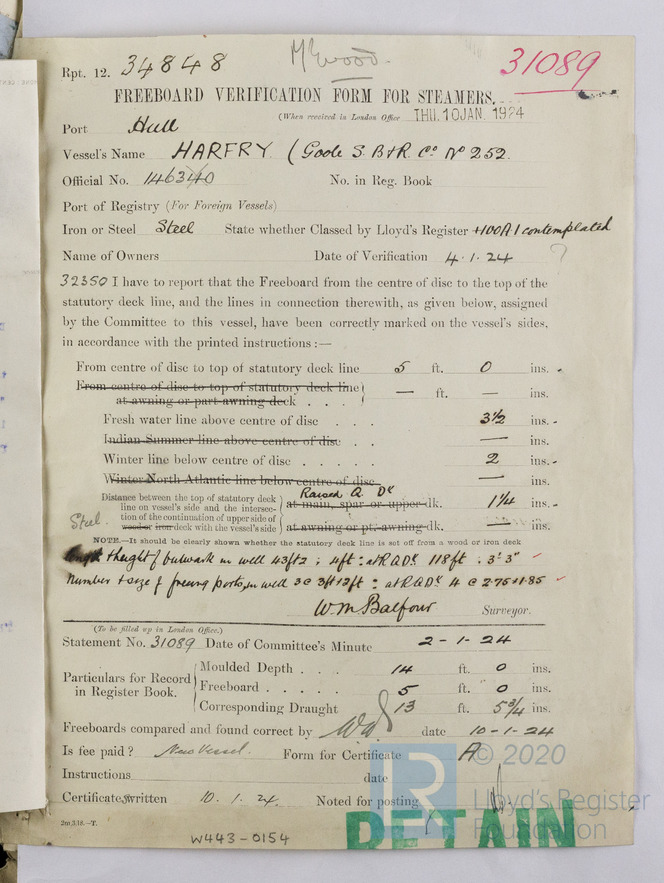 Rpt. 12. 34848
McEwood.
31089
FREEBOARD VERIFICATION FORM FOR STEAMERS.
(When received in London Office THU. 10 JAN. 1924
Port Hull
Vessel's Name HARFRY. (Goole S. B & R. Co No 252.
Official No. 146340 No. in Reg. Book
Port of Registry (For Foreign Vessels)
Iron or Steel Steel State whether Classed by Lloyd's Register +100A1 contemplated
Name of Owners Date of Verification 4.1.24 ?
32350 I have to report that the Freeboard from the centre of disc to the top of the
statutory deck line, and the lines in connection therewith, as given below, assigned
by the Committee to this vessel, have been correctly marked on the vessel's sides,
in accordance with the printed instructions :—
From centre of disc to top of statutory deck line 5 ft. 0 ins.
From centre of disc to top of statutory deck line
at awning or part awning deck . . . — ft. — ins.
Fresh water line above centre of disc . . . 3½ ins.
Indian Summer line above centre of disc . . — ins.
Winter line below centre of disc . . . . . 2 ins.
Winter North Atlantic line below centre of disc — ins.
Raised Q. Dk
Distance between the top of statutory deck
line on vessel's side and the intersec-
tion of the continuation of upper side of
wood or iron deck with the vessel's side
Steel
at main, spar or upper dk. 1¼ ins.
at awning or pt. awning dk. — ins.
NOTE.—It should be clearly shown whether the statutory deck line is set off from a wood or iron deck
Length & height of bulwark in well 43ft2 ; 4ft : at R Q Dk 118ft : 3' 3"
Number & size of freeing ports, in well 3 @ 3ft x 2ft : at R Q Dk 4 @ 2.75 x 1.85
W. M Balfour Surveyor.
(To be filled up in London Office.)
Statement No. 31089 Date of Committee's Minute 2-1-24
Particulars for Record
in Register Book.
Moulded Depth . . . 14 ft. 0 ins.
Freeboard . . . . . 5 ft. 0 ins.
Corresponding Draught 13 ft. 5¾ ins.
Freeboards compared and found correct by date 10-1-24
Is fee paid? New Vessel. Form for Certificate A
Instructions date
Certificates written 10.1.24. Noted for posting
2m,3.18.—T.
W443-0154
DETAIN
LR
© 2020
Lloyd's Register
Foundation